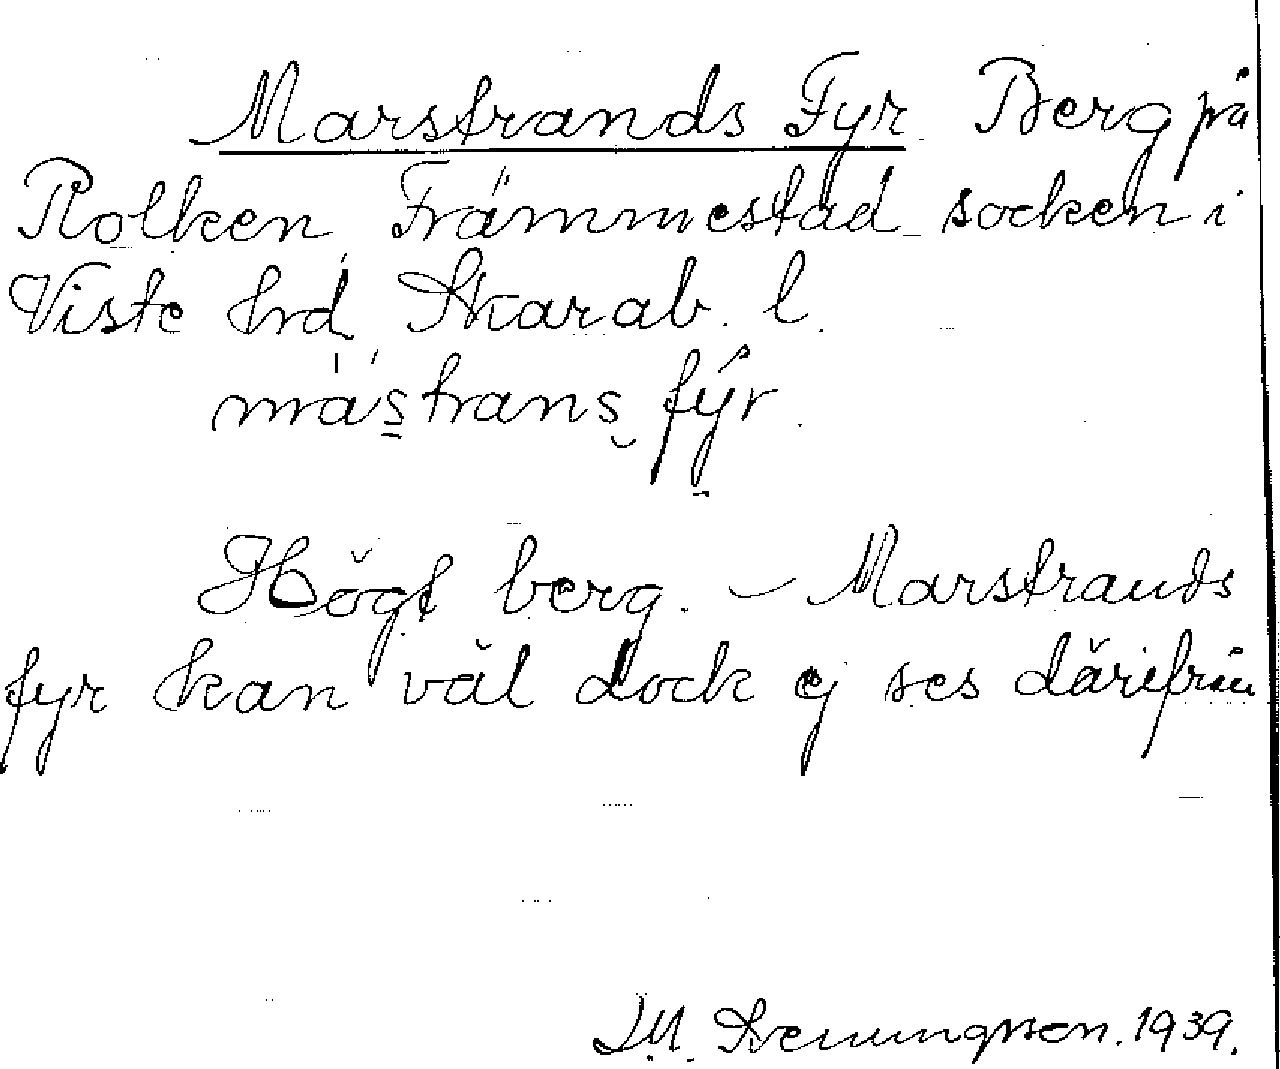 Marstrands Fyr Berg på
Rolken Främmestad socken i
Viste hrd Skarab. l.
má's̳trans fýr.
Högt berg. – Marstrands
fyr kan väl dock ej ses därifrån
1939.